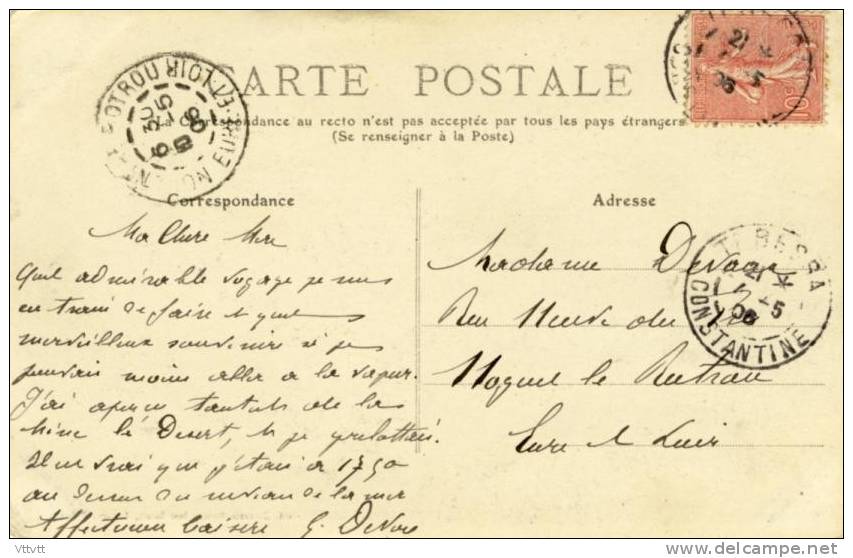 CARTE POSTALE
La Correspondance au recto n'est pas acceptée par tous les pays étrangers
(Se renseigner à la Poste)
NOGENT-LE-ROTROU EURE-ET-LOIR
6 30
5
06
21
5
06
10
Correspondance
Ma Chère Mère
Quel admirable voyage je suis
en train de faire et quels
merveilleux souvenirs si je
pouvais moins aller à la vapeur.
J'ai aperçu tantôt de la
mine le Désert, et je grelottai.
Il est vrai que j'étais à 1750
au dessus du niveau de la mer
Affectueux baisers G. Devaux
Adresse
Madame Devaux
Rue Neuve des
Nogent le Rotrou
Eure et Loir
TEBESSA
21
5
06
CONSTANTINE
Vttvtt
delcampe.net